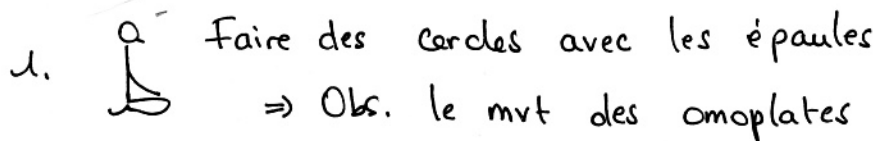 1. Faire des cercles avec les épaules
⇒ Obs. le mvt des omoplates